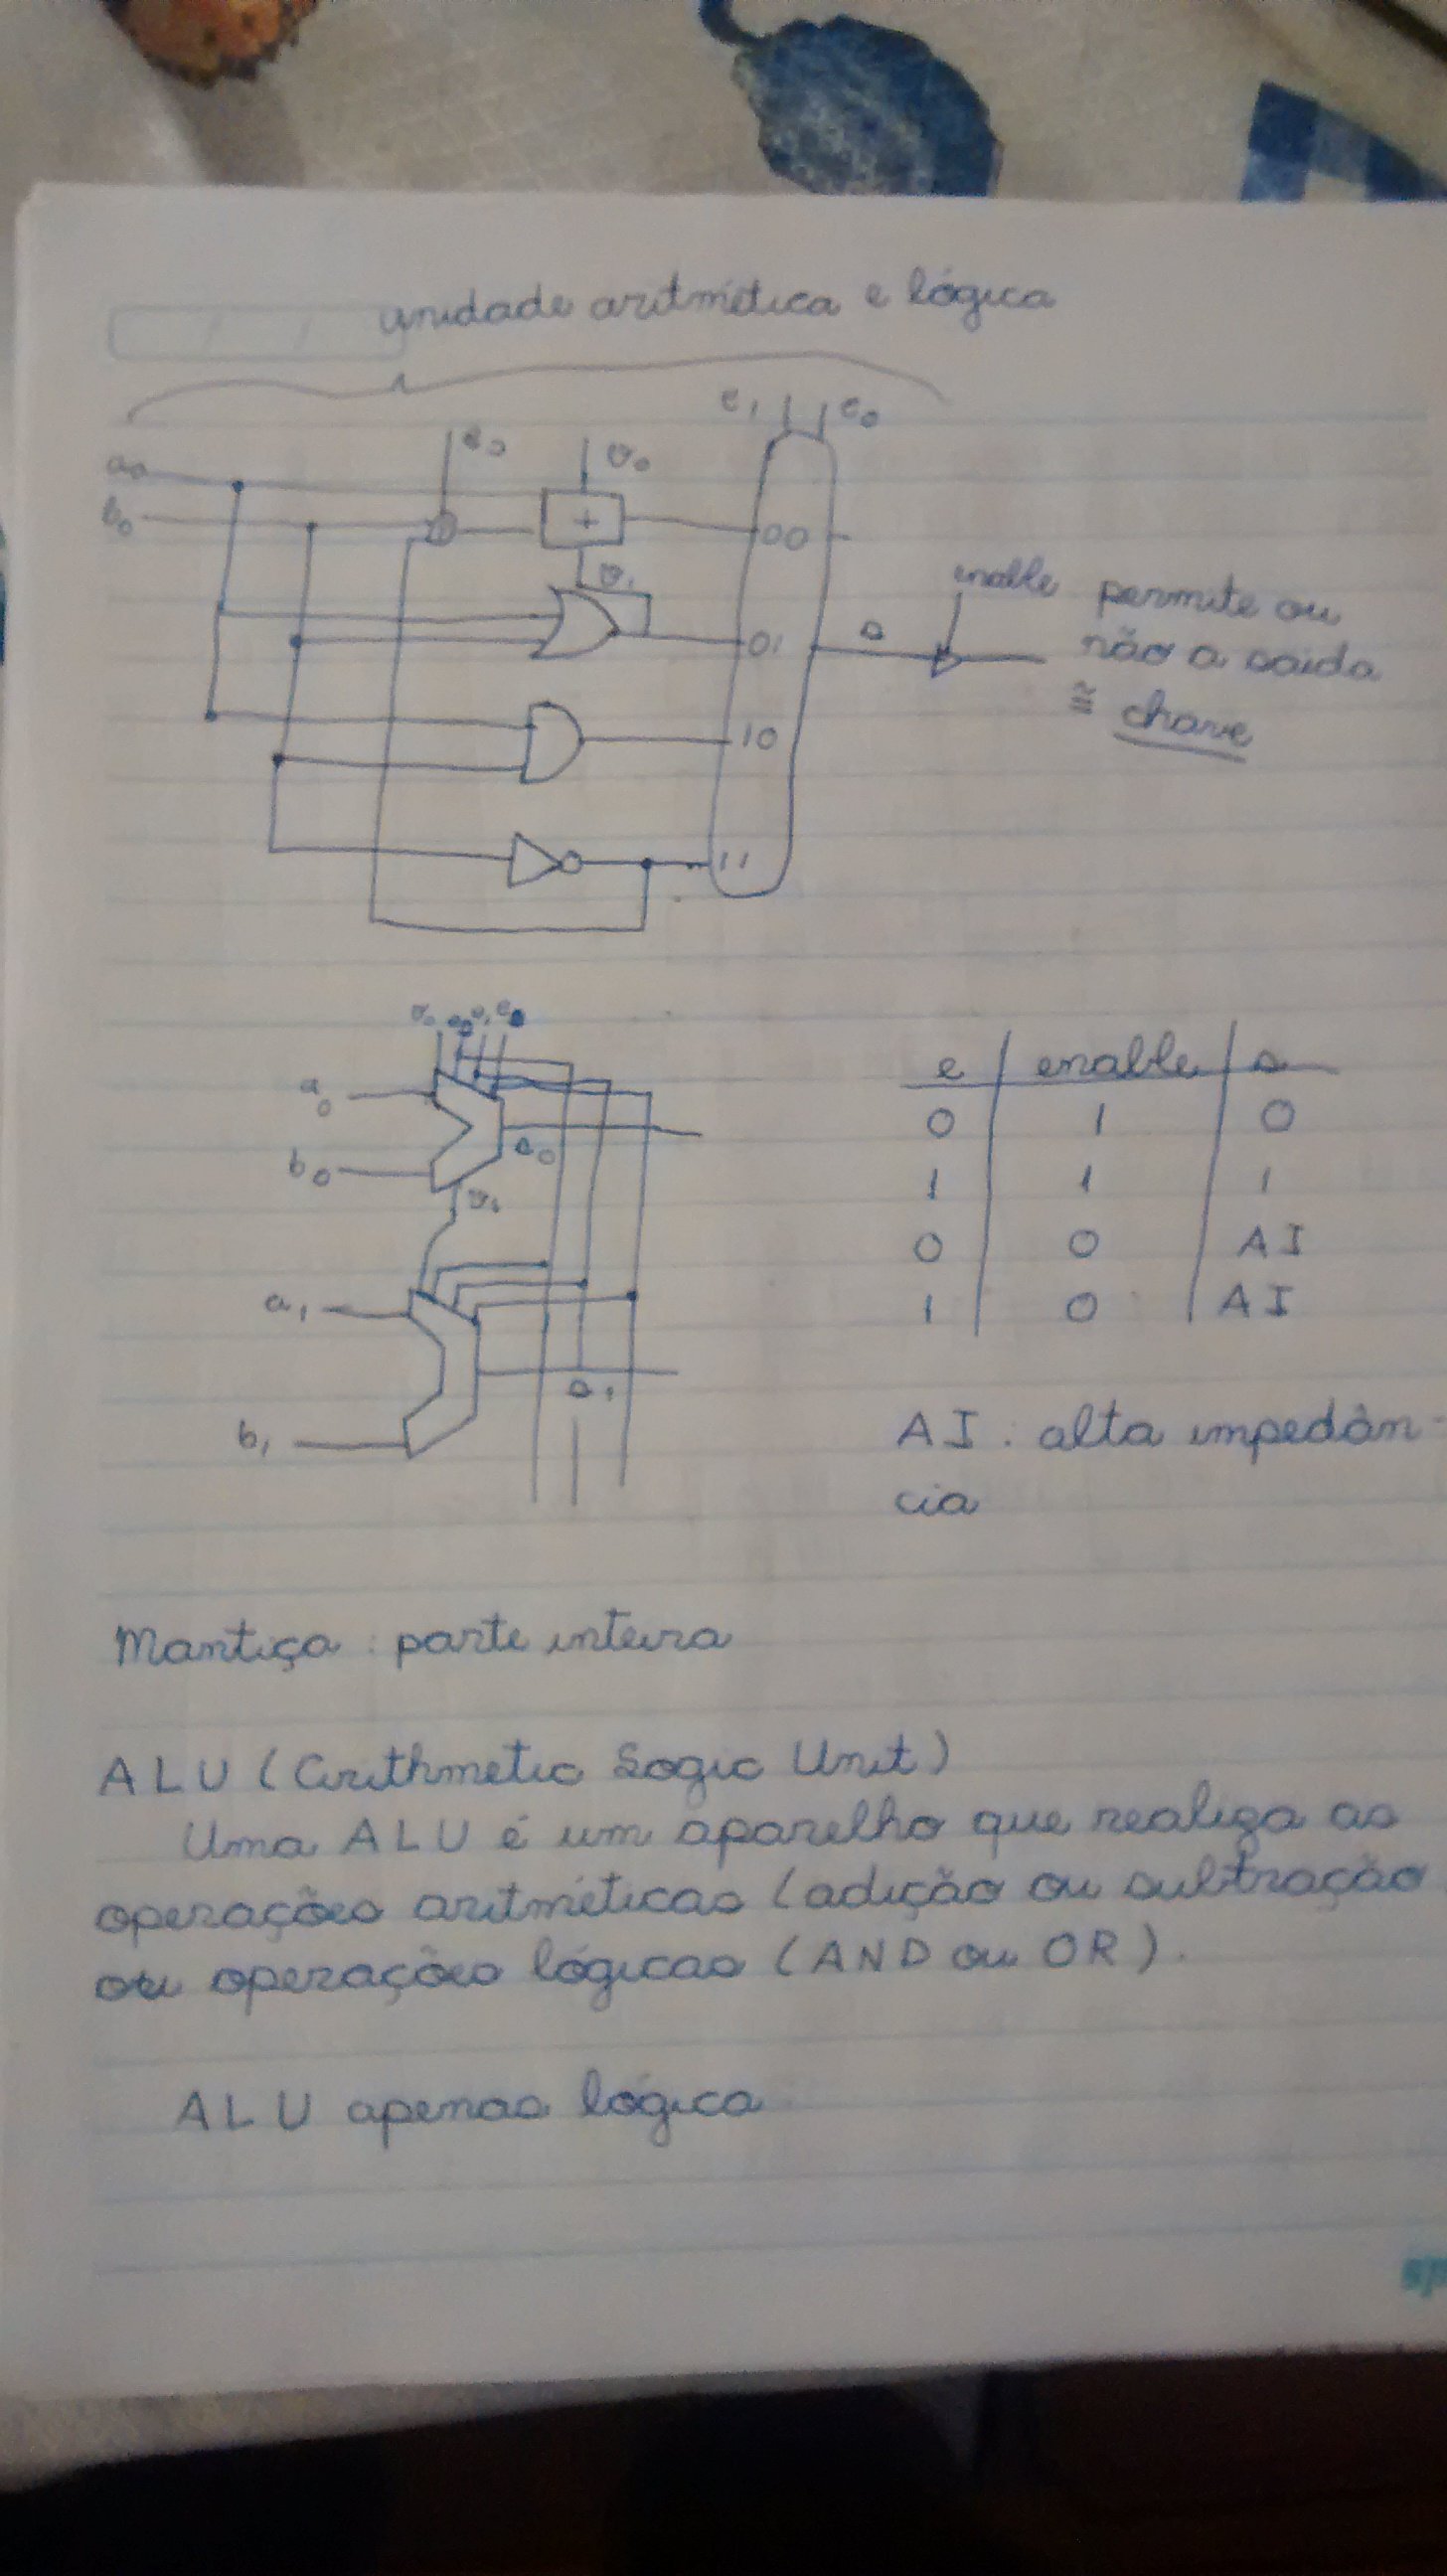 unidade aritmética e lógica
e₁ e₀
a₀
b₀
v₀
+
00
v₁
01
s
enable
permite ou
não a saida
≅ chave
10
11
v₀
a₀
b₀
s₀
v₁
a₁
b₁
s₁
e enable s
0 1 0
1 1 1
0 0 AI
1 0 AI
AI: alta impedân-
cia
Mantiça: parte inteira
ALU (Arithmetic Logic Unit)
Uma ALU é um aparelho que realiza as
operações aritméticas (adição ou subtração
ou operações lógicas (AND ou OR).
ALU apenas lógica